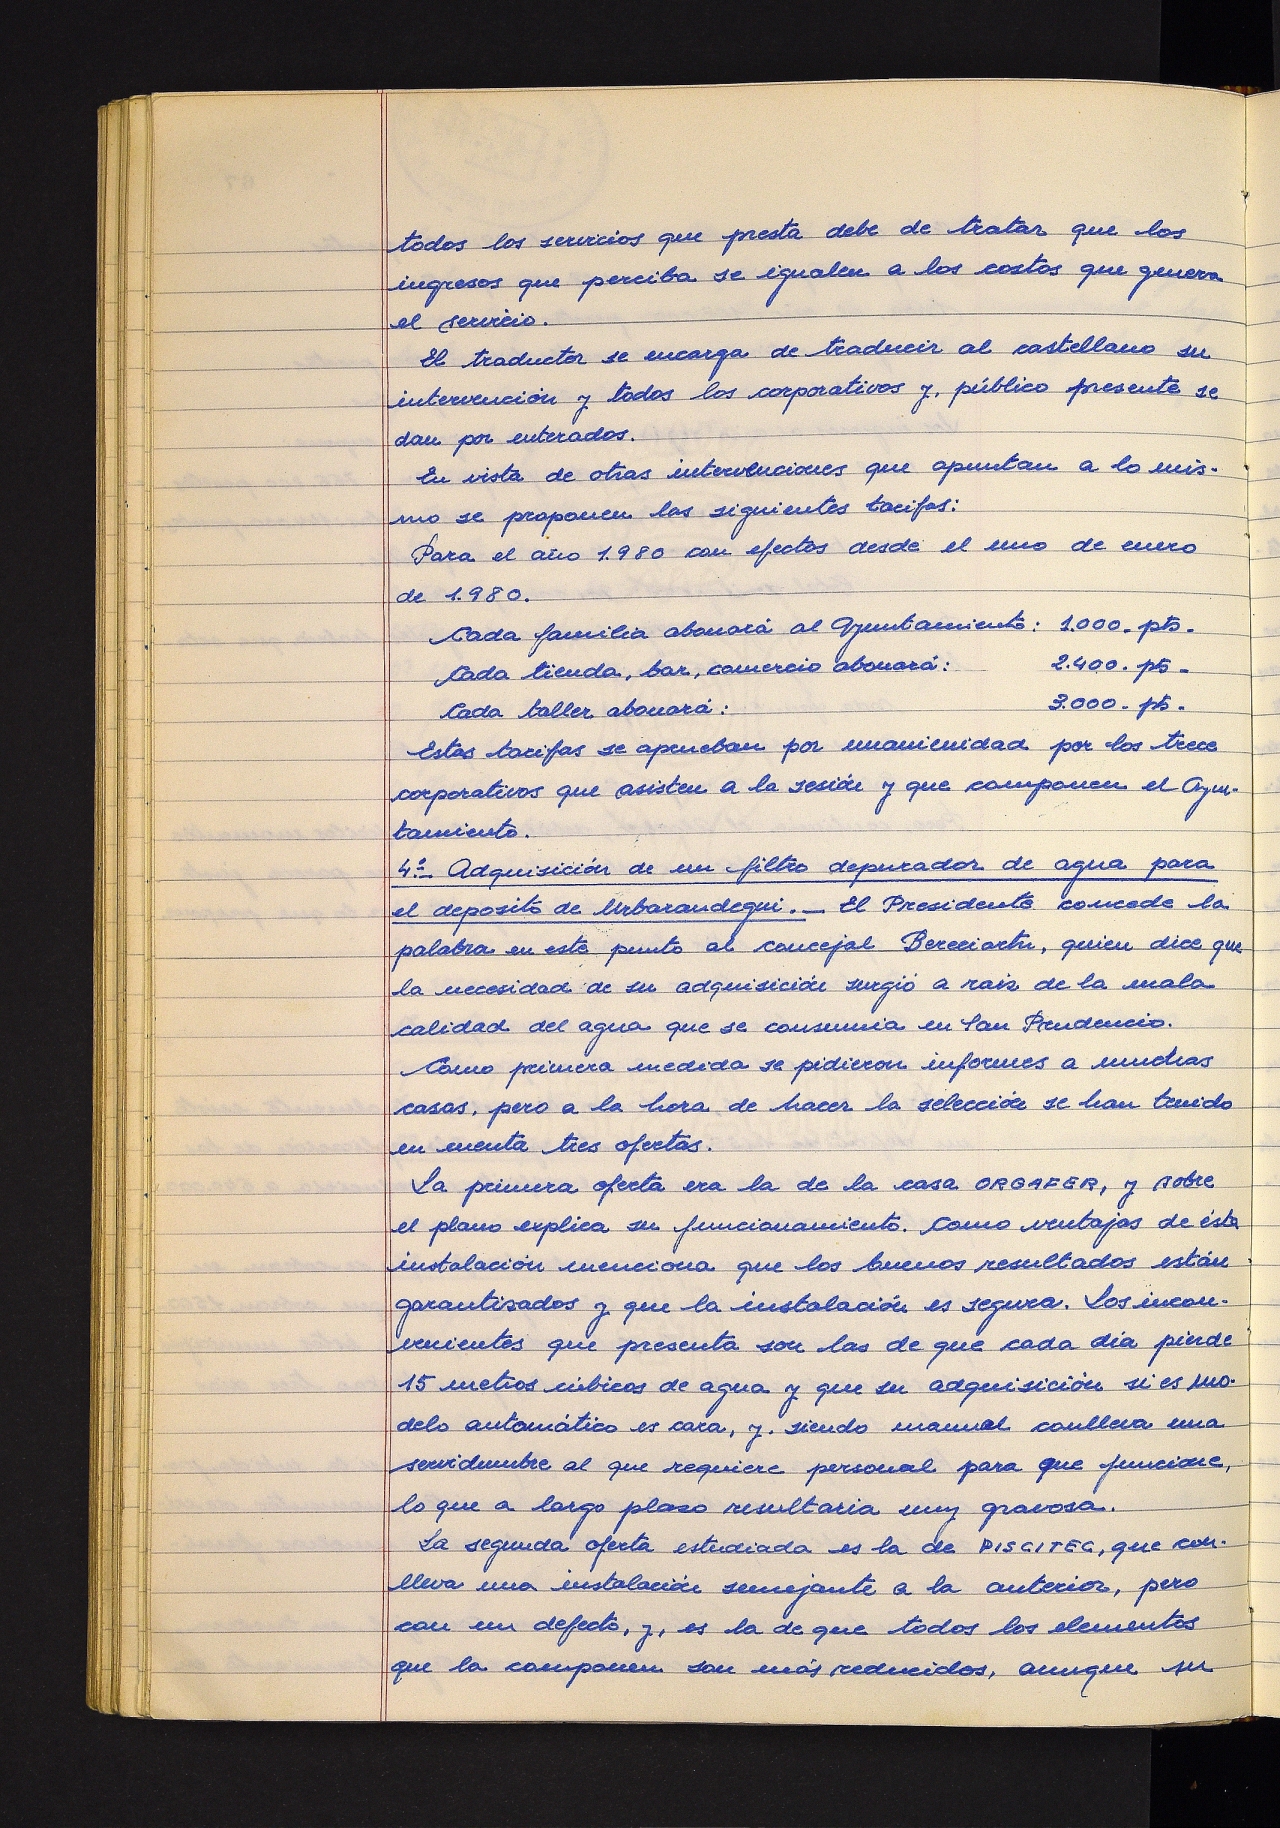 todos los servicios que presta debe de tratar que los
ingresos que perciba se igualen a los costos que genera
el servicio.
El traductor se encarga de traducir al castellano su
intervención y todos los corporativos y, público presente se
dan por enterados.
En vista de otras intervenciones que apuntan a lo mis-
mo se proponen las siguientes tarifas:
Para el año 1.980 con efectos desde el uno de enero
de 1.980.
Cada familia abonará al Ayuntamiento: 1.000.- pts.-
Cada tienda, bar, comercio abonará: 2.400.- pts.-
Cada taller abonará: 3.000.- pts.-
Estas tarifas se aprueban por unanimidad por los trece
corporativos que asisten a la sesión y que componen el Ayun-
tamiento.
4º.- Adquisición de un filtro depurador de agua para
el deposito de Urbarandegui.- El Presidente concede la
palabra en este punto al concejal Bereciartu, quien dice que
la necesidad de su adquisición surgió a raiz de la mala
calidad del agua que se consumia en San Prudencio.
Como primera medida se pidieron informes a muchas
casas, pero a la hora de hacer la selección se han tenido
en cuenta tres ofertas.
La primera oferta era la de la casa ORGAFER, y sobre
el plano explica su funcionamiento. Como ventajas de ésta
instalación menciona que los buenos resultados están
garantizados y que la instalación es segura. Los incon-
venientes que presenta son las de que cada dia pierde
15 metros cúbicos de agua y que su adquisición si es mo-
delo automático es cara, y. siendo manual conlleva una
servidumbre al que requiere personal para que funcione,
lo que a largo plazo resultaria muy gravosa.
La segunda oferta estudiada es la de PISCITEC, que con-
lleva una instalación semejante a la anterior, pero
con un defecto, y, es la de que todos los elementos
que la componen son más reducidos, aunque su